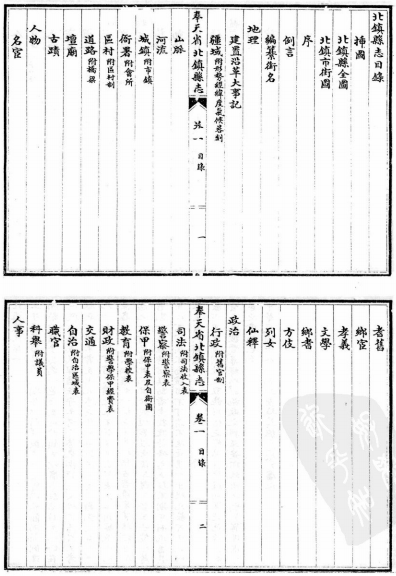 北鎮縣志目錄
插圖
北鎮縣全圖
北鎮市街圖
序
例言
編纂銜名
地理
建置沿革大事記
疆域附形勢經緯度氣候晷刻
奉天省北鎮縣志 卷一 目錄 一
山脈
河流
城鎮附市鎮
衙署附會所
區村附區村制
道路附橋梁
壇廟
古蹟
人物
名宦
耆舊
鄉宦
孝義
文學
鄉耆
方伎
列女
仙釋
政治
行政附舊官制
奉天省北鎮縣志 卷一 目錄 二
司法附司法收入表
警察附警察表
保甲附保甲表及自衛團
教育附學校表
財政附警學保甲經費表
交通
自治附自治區域表
職官
科舉附議員
人事